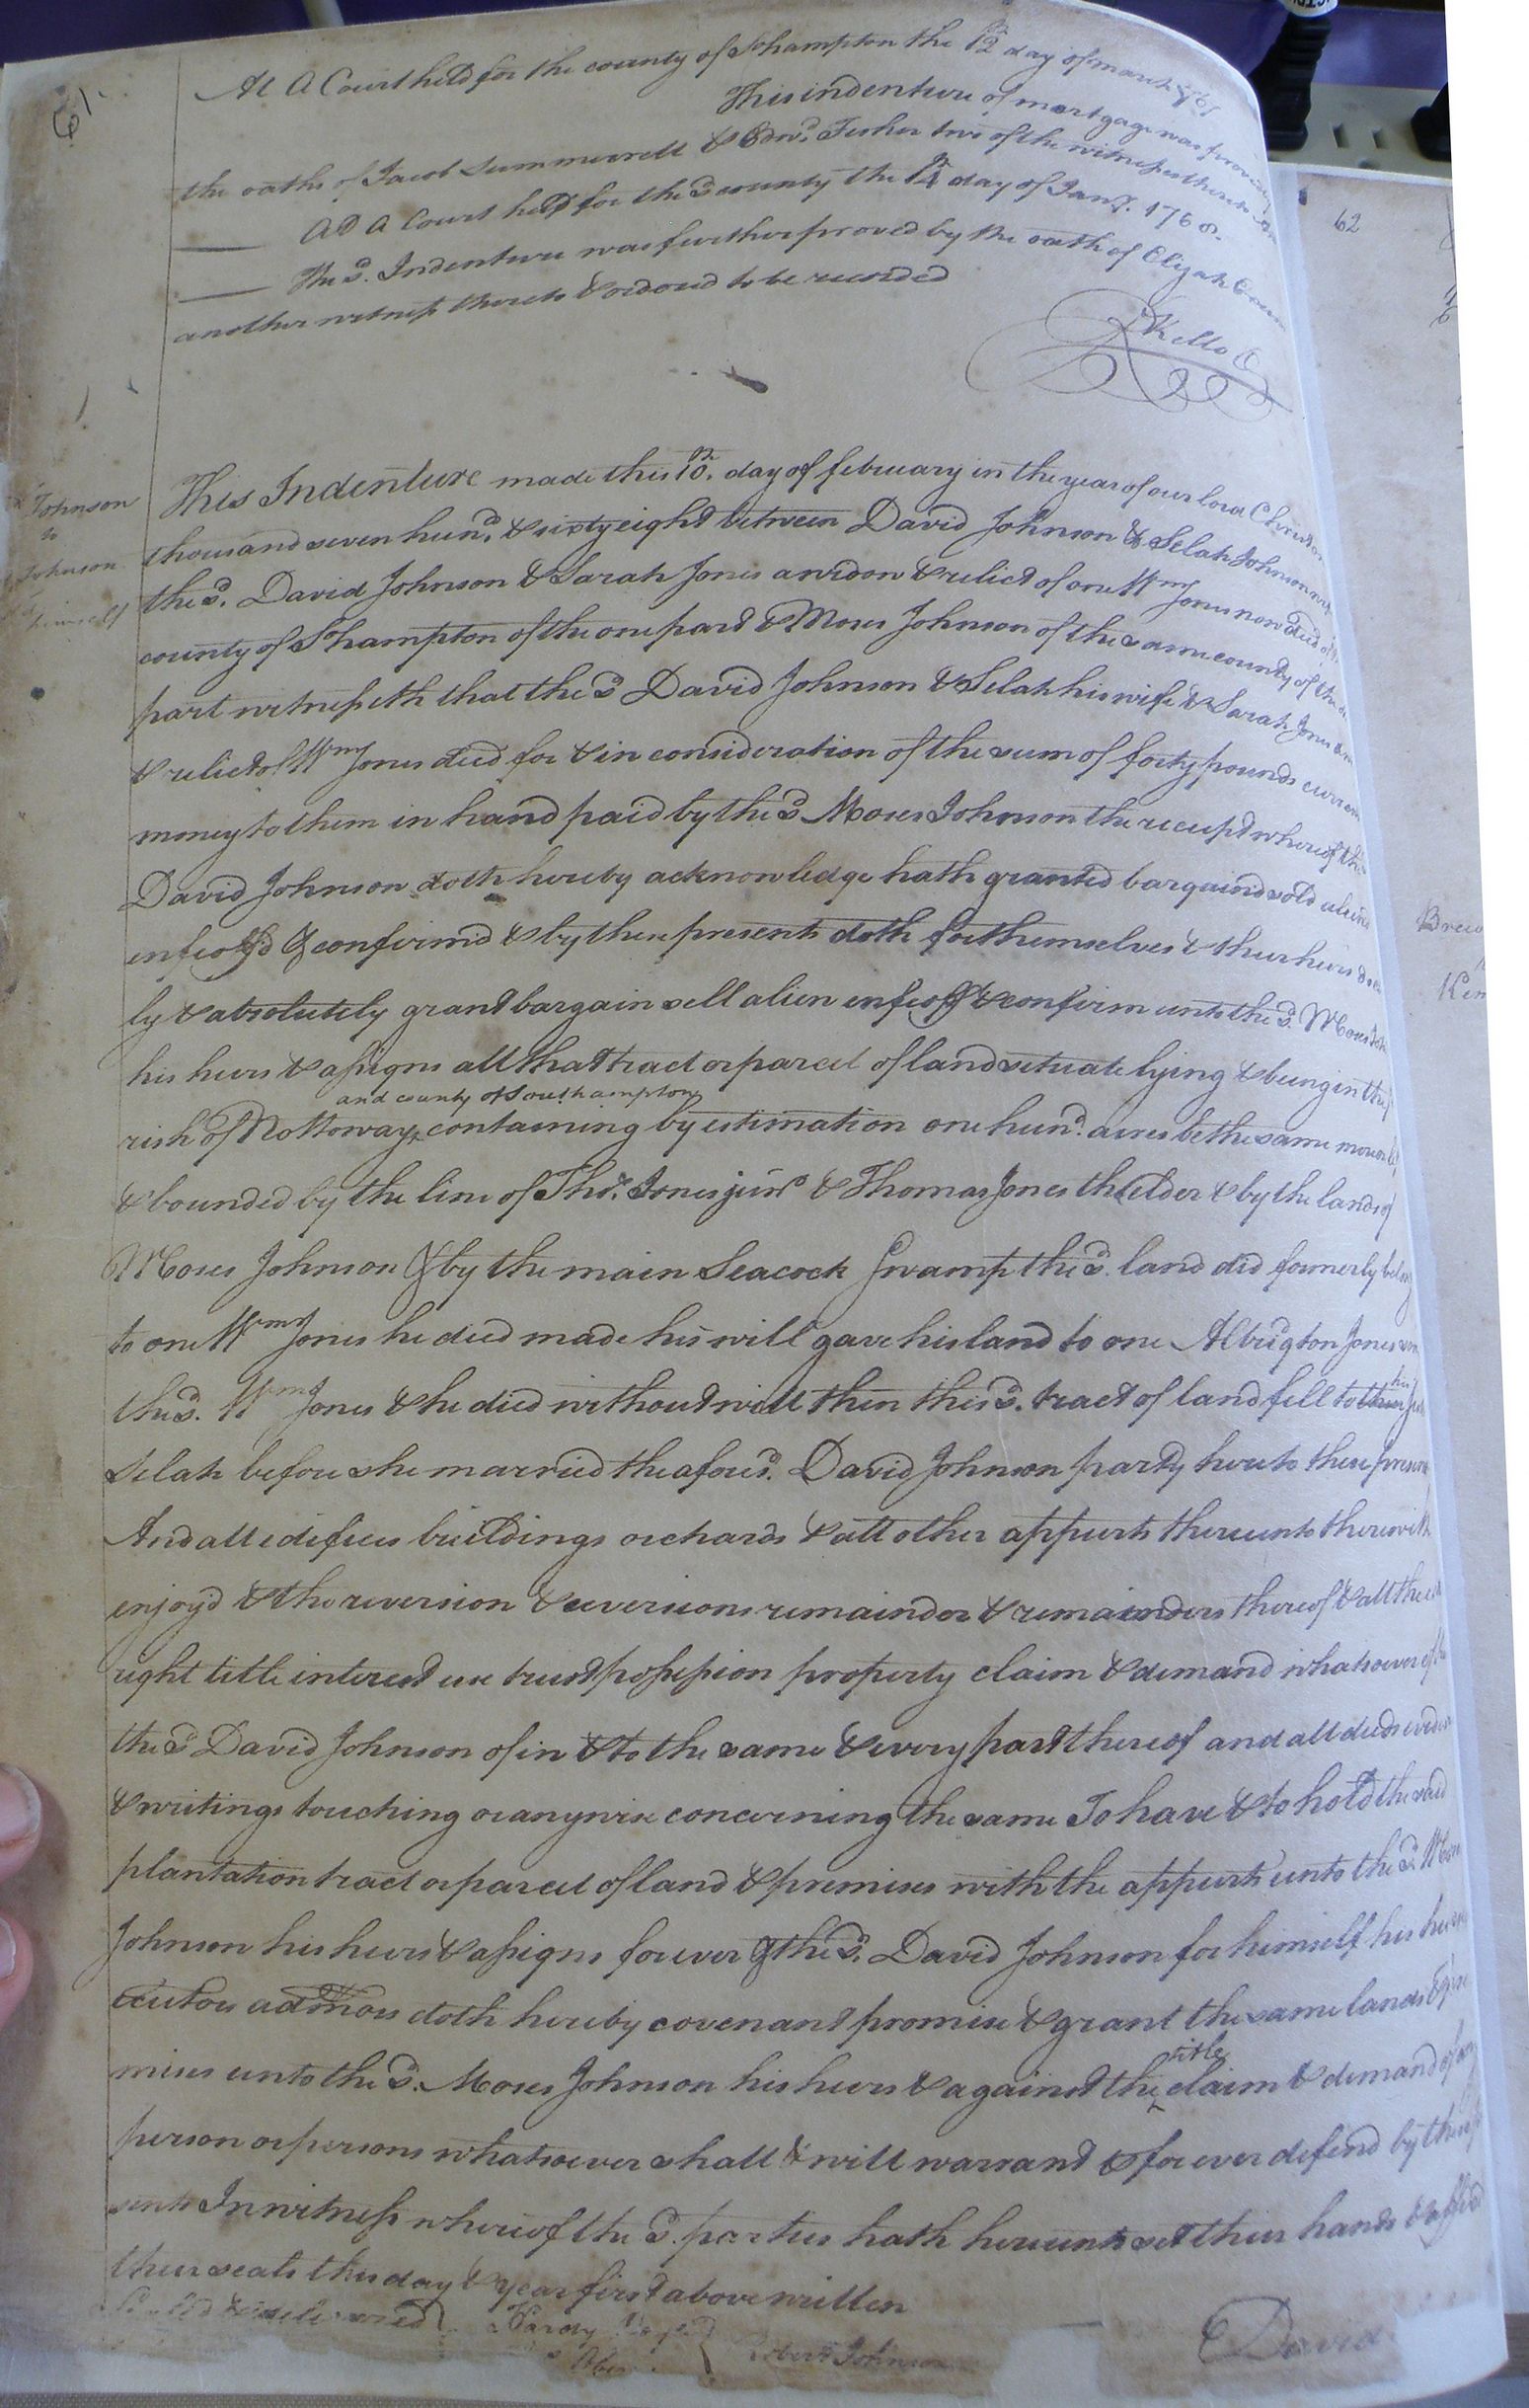 61.
At A Court held for the county of Sohampton the 12th day of march 1767
This indenture of mortgage was proved by
the oaths of Jacob Summerrell & Edwd. Fisher two of the witnesses thereto
At A Court held for the sd county the 14th day of Jany. 1768.
The sd. Indenture was further proved by the oath of Elijah
another witness thereto & ordered to be recorded
Kello C
62
Johnson
to
Johnson
himself
This Indenture made this 10th. day of february in the year of our lord Christ one
thousand seven hund. & sixty eight between David Johnson & Selah Johnson wife
the sd. David Johnson & Sarah Jones a widow & relict of one Wm Jones now deed of the
county of Sohampton of the one part & Moses Johnson of the same county of the
part witnesseth that the sd David Johnson & Selah his wife & Sarah Jones
& relict of Wm Jones deed for & in consideration of the sum of forty pounds current
money to them in hand paid by the sd Moses Johnson the receipt whereof the
David Johnson doth hereby acknowledge hath granted bargaind sold aliend
enfeoff'd & confirmd & by these presents doth for themselves & their heirs
ly & absolutely grant bargain sell alien enfeoff & confirm unto the sd. Moses
his heirs & assigns all that tract or parcel of land situate lying & being in the
and county of Southampton
rish of Nottoway containing by estimation one hund. acres be the same more or
& bounded by the line of Thos. Jones junr & Thomas Jones the elder & by the lands of
Moses Johnson & by the main Seacock Swamp the sd. land did formerly belong
to one Wm Jones he died made his will gave his land to one Albrigton Jones son
his
the sd. Wm Jones & he died without will then the sd. tract of land fell to
Selah before she married the aforesd. David Johnson party hereto these presents
And all edifices buildings orchards & all other appurts thereunto therewith
enjoyd & the reversion & reversions remainder & remainders thereof & all the
right title interest use trust possession property claim & demand whatsoever of
the sd David Johnson of in & to the same & every part thereof and all deeds
& writings touching or anywise concerning the same To have & to hold the said
plantation tract or parcel of land & premises with the appurts unto the sd. Moses
Johnson his heirs & assigns forever & the sd. David Johnson for himself his heirs
ecutors admors doth hereby covenant promise & grant the same lands & pre
title
mises unto the sd. Moses Johnson his heirs & against the claim & demand of any
person or persons whatsoever shall & will warrant & forever defend by these
sents In witness whereof the sd. parties hath hereunto set their hands & affixd
their seals this day & year first above written
Sealed & deliverred
Hardy
Robert Johnson
David